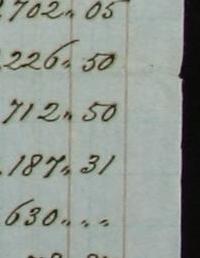 ,702 " 05
,226 " 50
712 " 50
,187 " 31
630 " " "